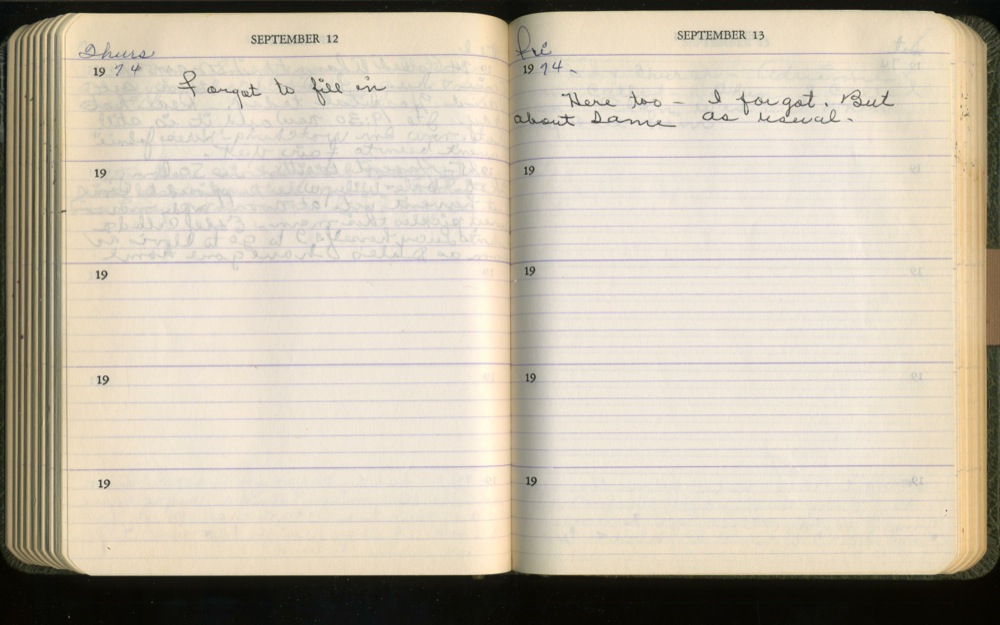 SEPTEMBER 12
Thurs
1974
Forgot to fill in
19
19
19
19
SEPTEMBER 13
Fri
1974.
Here too - I forgot. But
about same as usual.
19
19
19
19